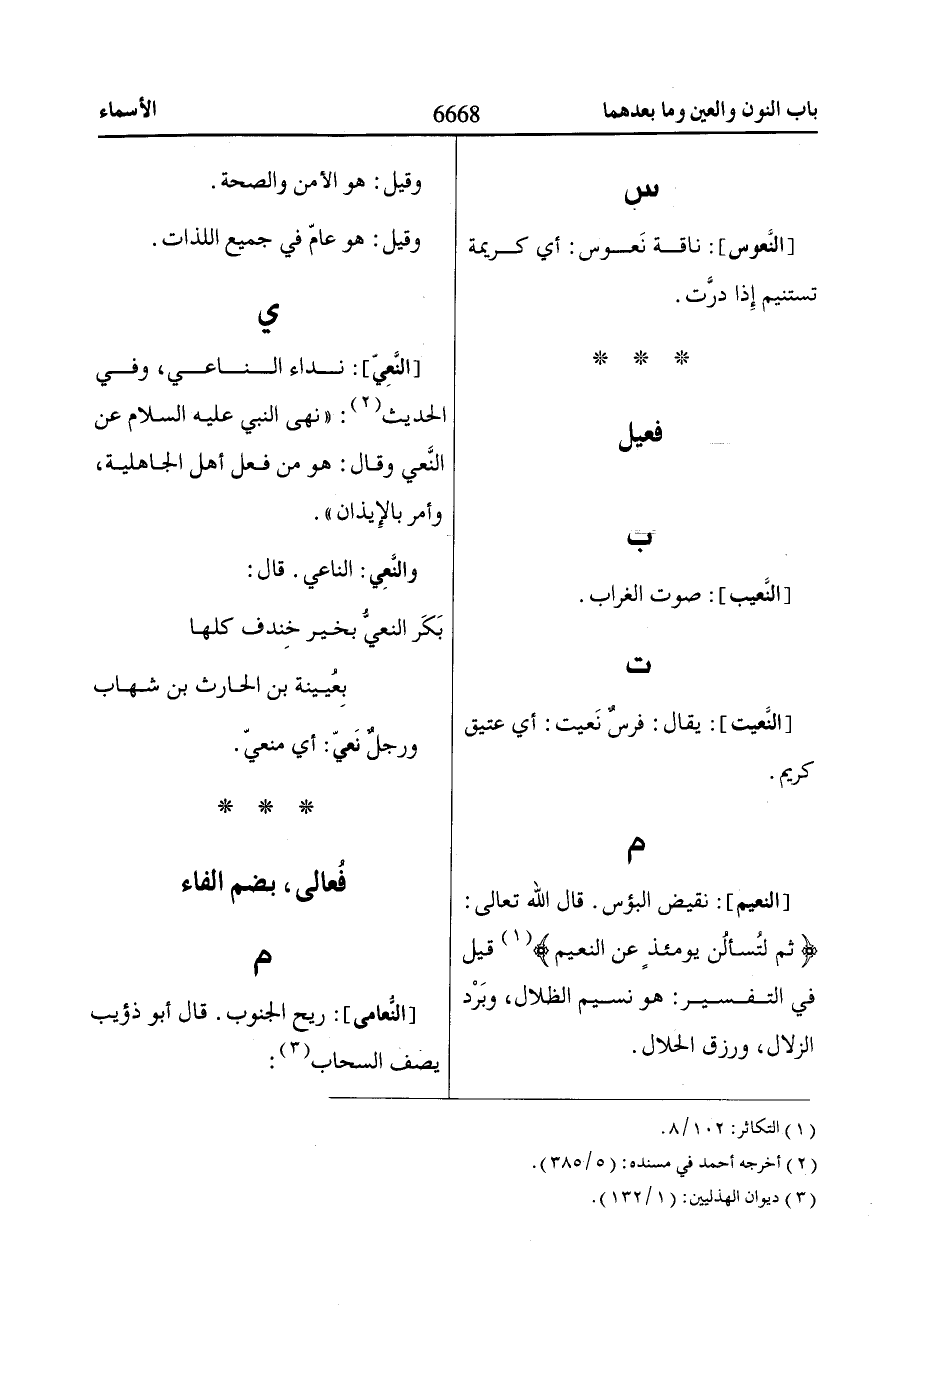 باب النون والعين وما بعدهما 6668 الأسماء
س
[النَّعوس]: ناقـة نَعـوس: أي كـريمة
تستنيم إِذا درَّت.
* * *
فعيل
ب
[النَّعيب]: صوت الغراب.
ت
[النَّعيت]: يقال: فرسٌ نَعيت: أي عتيق
كريم.
م
[النعيم]: نقيض البؤس. قال الله تعالى:
﴿ثم لتُسألُن يومئذٍ عن النعيم﴾(١) قيل
في التـفـسـيـر: هو نسيم الظلال، وبَرْد
الزلال، ورزق الحلال.
وقيل: هو الأمن والصحة.
وقيل: هو عامّ في جميع اللذات.
ي
[النَّعِيّ]: نـداء النـاعـي، وفـي
الحديث(٢): «نهى النبي عليه السلام عن
النَّعي وقال: هو من فعل أهل الجاهلية،
وأمر بالإِيذان».
والنَّعِي: الناعي. قال:
بَكَر النعيُّ بخير خِندف كلها
بِعُيينة بن الحارث بن شهاب
ورجلٌ نَعيّ: أي منعيّ.
* * *
فُعالى، بضم الفاء
م
[النُّعامى]: ريح الجنوب. قال أبو ذؤيب
يصف السحاب(٣):
(١) التكاثر: ١٠٢/٨.
(٢) أخرجه أحمد في مسنده: (٥/٣٨٥).
(٣) ديوان الهذليين: (١/١٣٢).